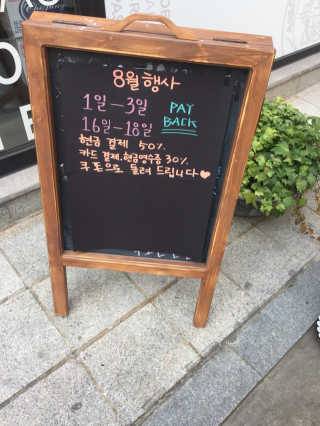 8월 행사
1일-3일 PAY
16일-18일 BACK
현금 결제 50%
카드 결제, 현금영수증 30%
쿠폰으로 돌려 드립니다♥